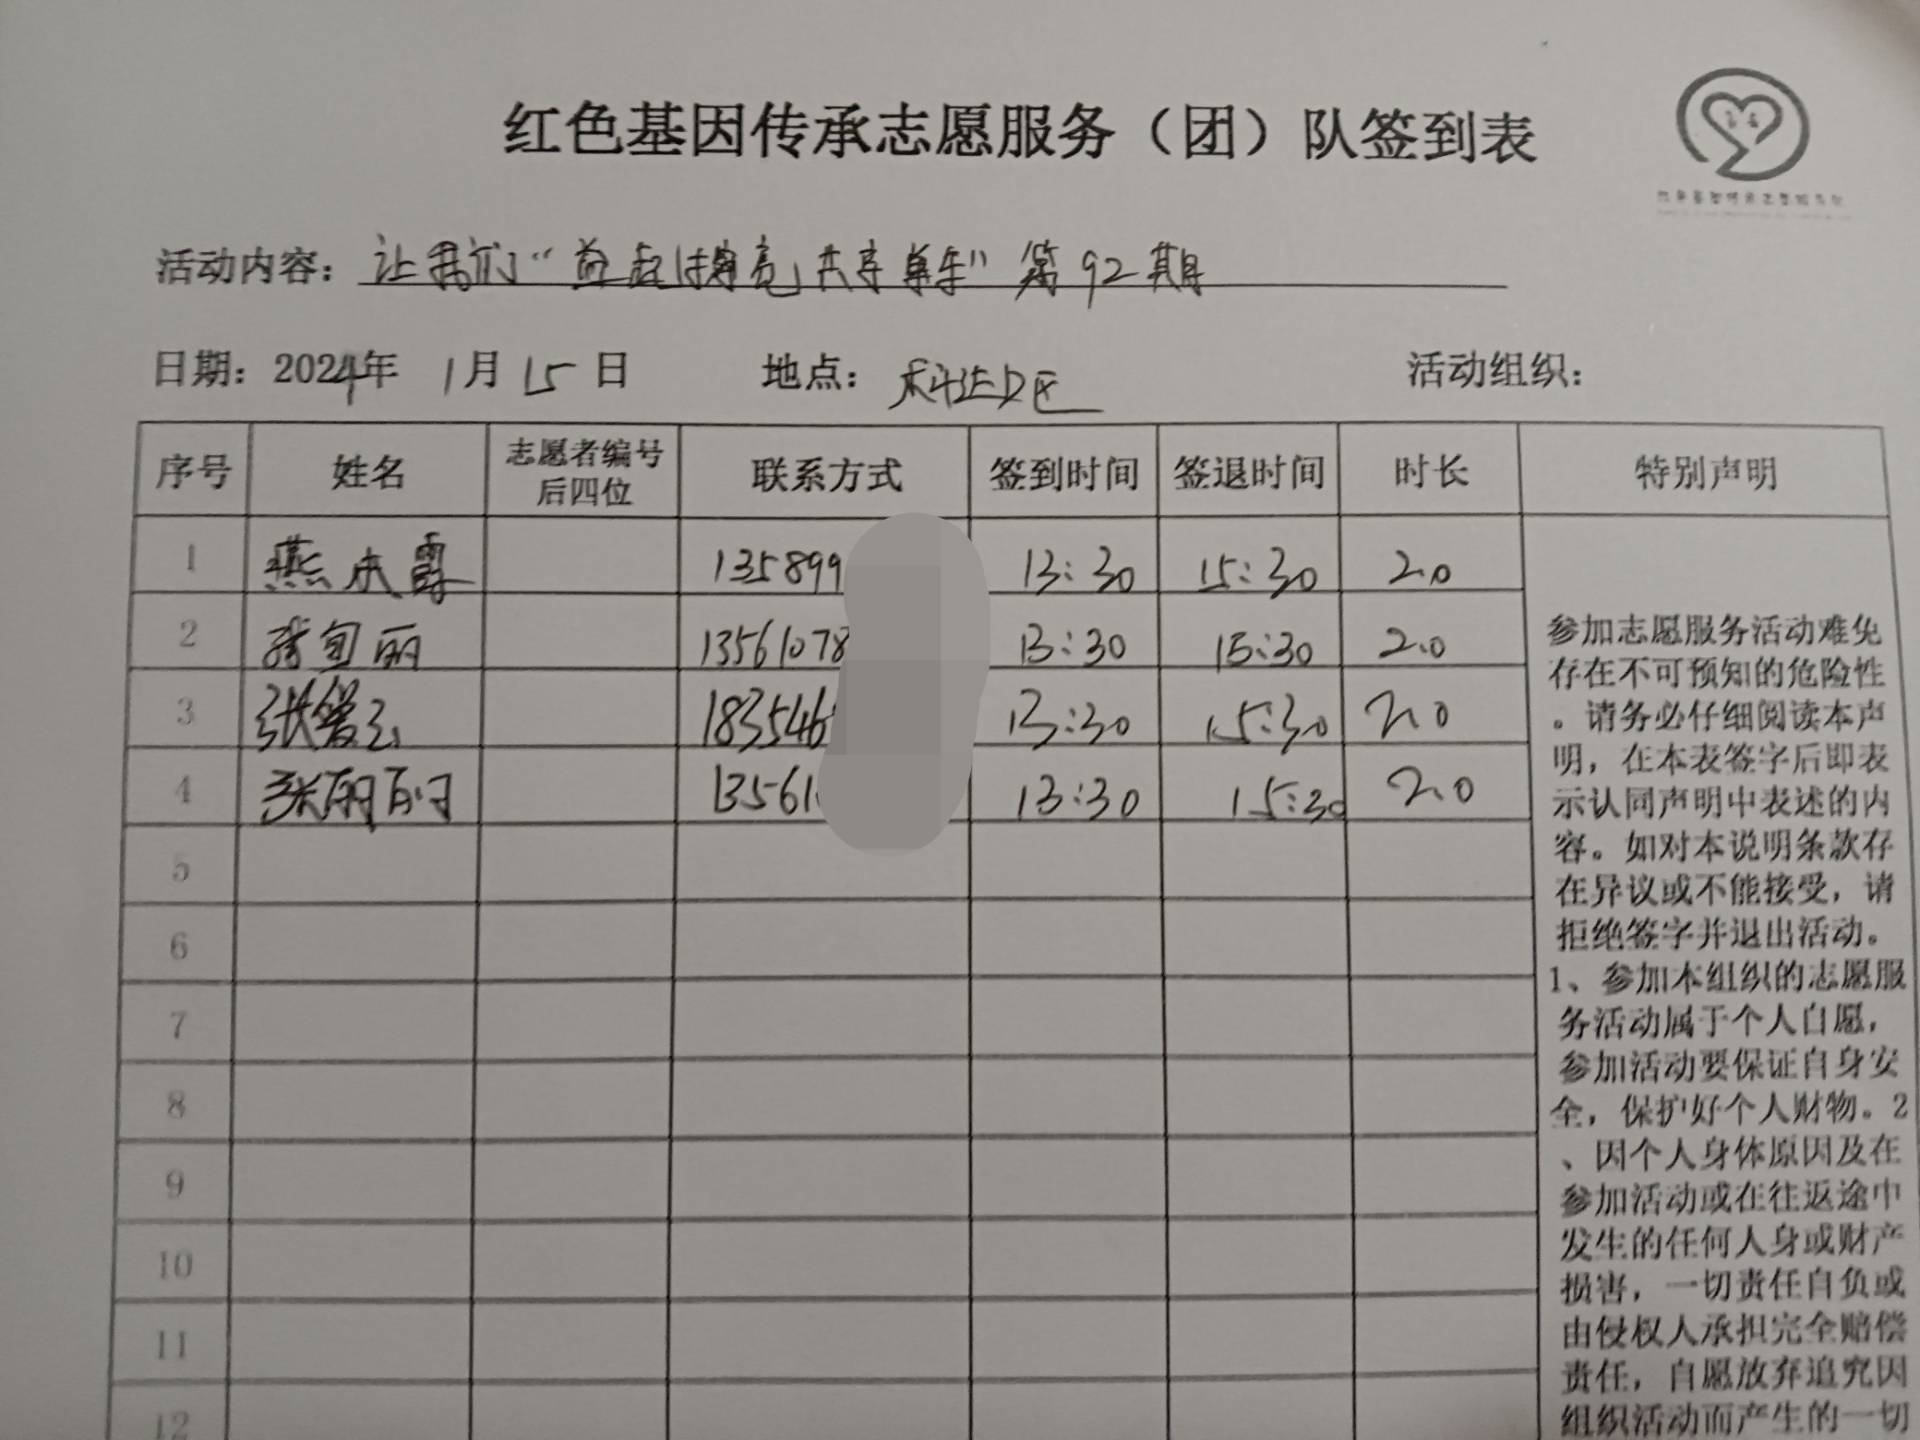 红色基因传承志愿服务（团）队签到表
活动内容：让我们“益起擦亮共享单车”第92期
日期：2024年 1月15日 地点： 活动组织：
序号 姓名 志愿者编号后四位 联系方式 签到时间 签退时间 时长 特别声明
1 燕木霞 135899 13:30 15:30 2.0
2 丽 13561078 13:30 15:30 2.0
3 张爱玉 183546 13:30 15:30 2.0
4 张丽丽 13561 13:30 15:30 2.0
5
6
7
8
9
10
11
12
参加志愿服务活动难免
存在不可预知的危险性
。请务必仔细阅读本声
明，在本表签字后即表
示认同声明中表述的内
容。如对本说明条款存
在异议或不能接受，请
拒绝签字并退出活动。
1、参加本组织的志愿服
务活动属于个人自愿，
参加活动要保证自身安
全，保护好个人财物。2
、因个人身体原因及在
参加活动或在往返途中
发生的任何人身或财产
损害，一切责任自负或
由侵权人承担完全赔偿
责任，自愿放弃追究因
组织活动而产生的一切